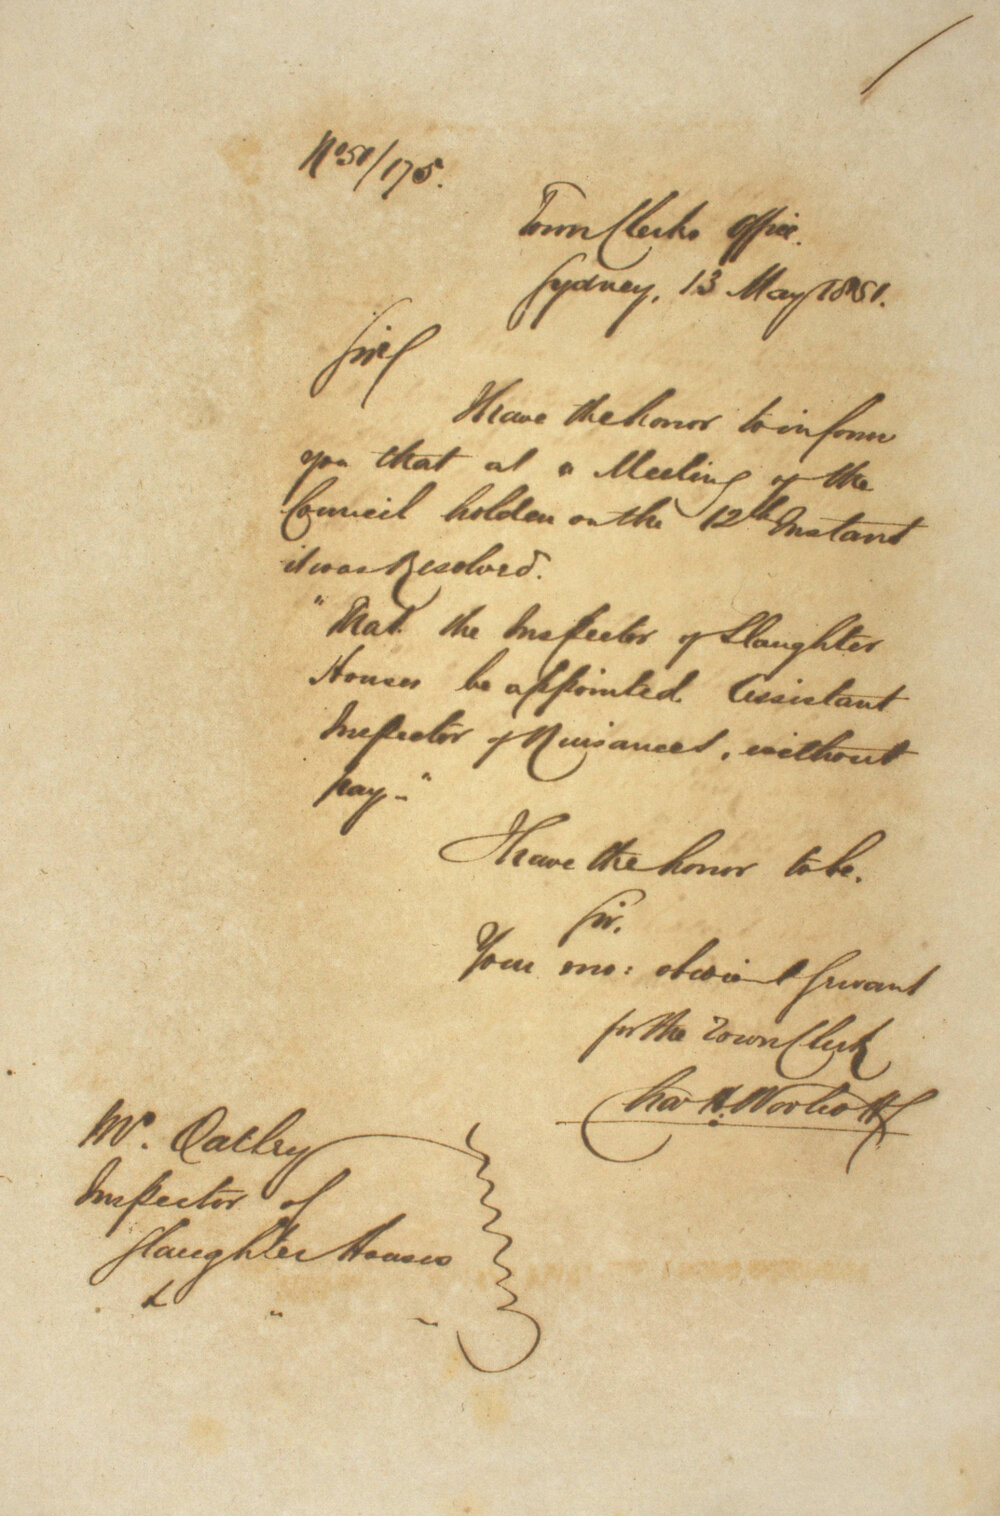 No 51/175.
Town Clerks Office.
Sydney, 13 May 1851.
Sir
I have the honor to inform
you that at a Meeting of the
Council holden on the 12th Instant
it was Resolved.
"That the Inspector of Slaughter
Houses be appointed Assistant
Inspector of Nuisances, without
pay-"
I have the honor to be.
Sir.
Your mo: obedient Servant
for the Town Clerk
Chas H. Woolcott
Mr. Oatley
Inspector of
Slaughter Houses
& " "